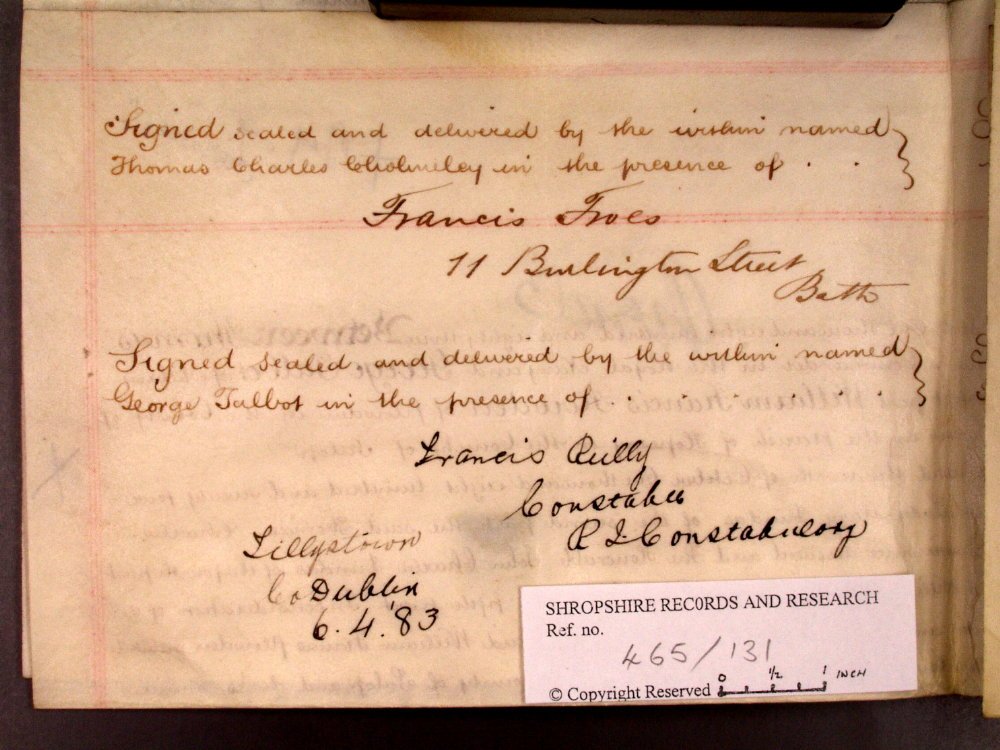 Signed sealed and delivered by the within named
Thomas Charles Cholmeley in the presence of . .
Francis
11 Burlington Street
Bath
Signed sealed and delivered by the within named
George Talbot in the presence of . . . . . .
Francis Reilly
Constable
R I Constabulary
Co Dublin
6.4.83
SHROPSHIRE RECORDS AND RESEARCH
Ref. no.
465/131
0 ½ 1 INCH
© Copyright Reserved